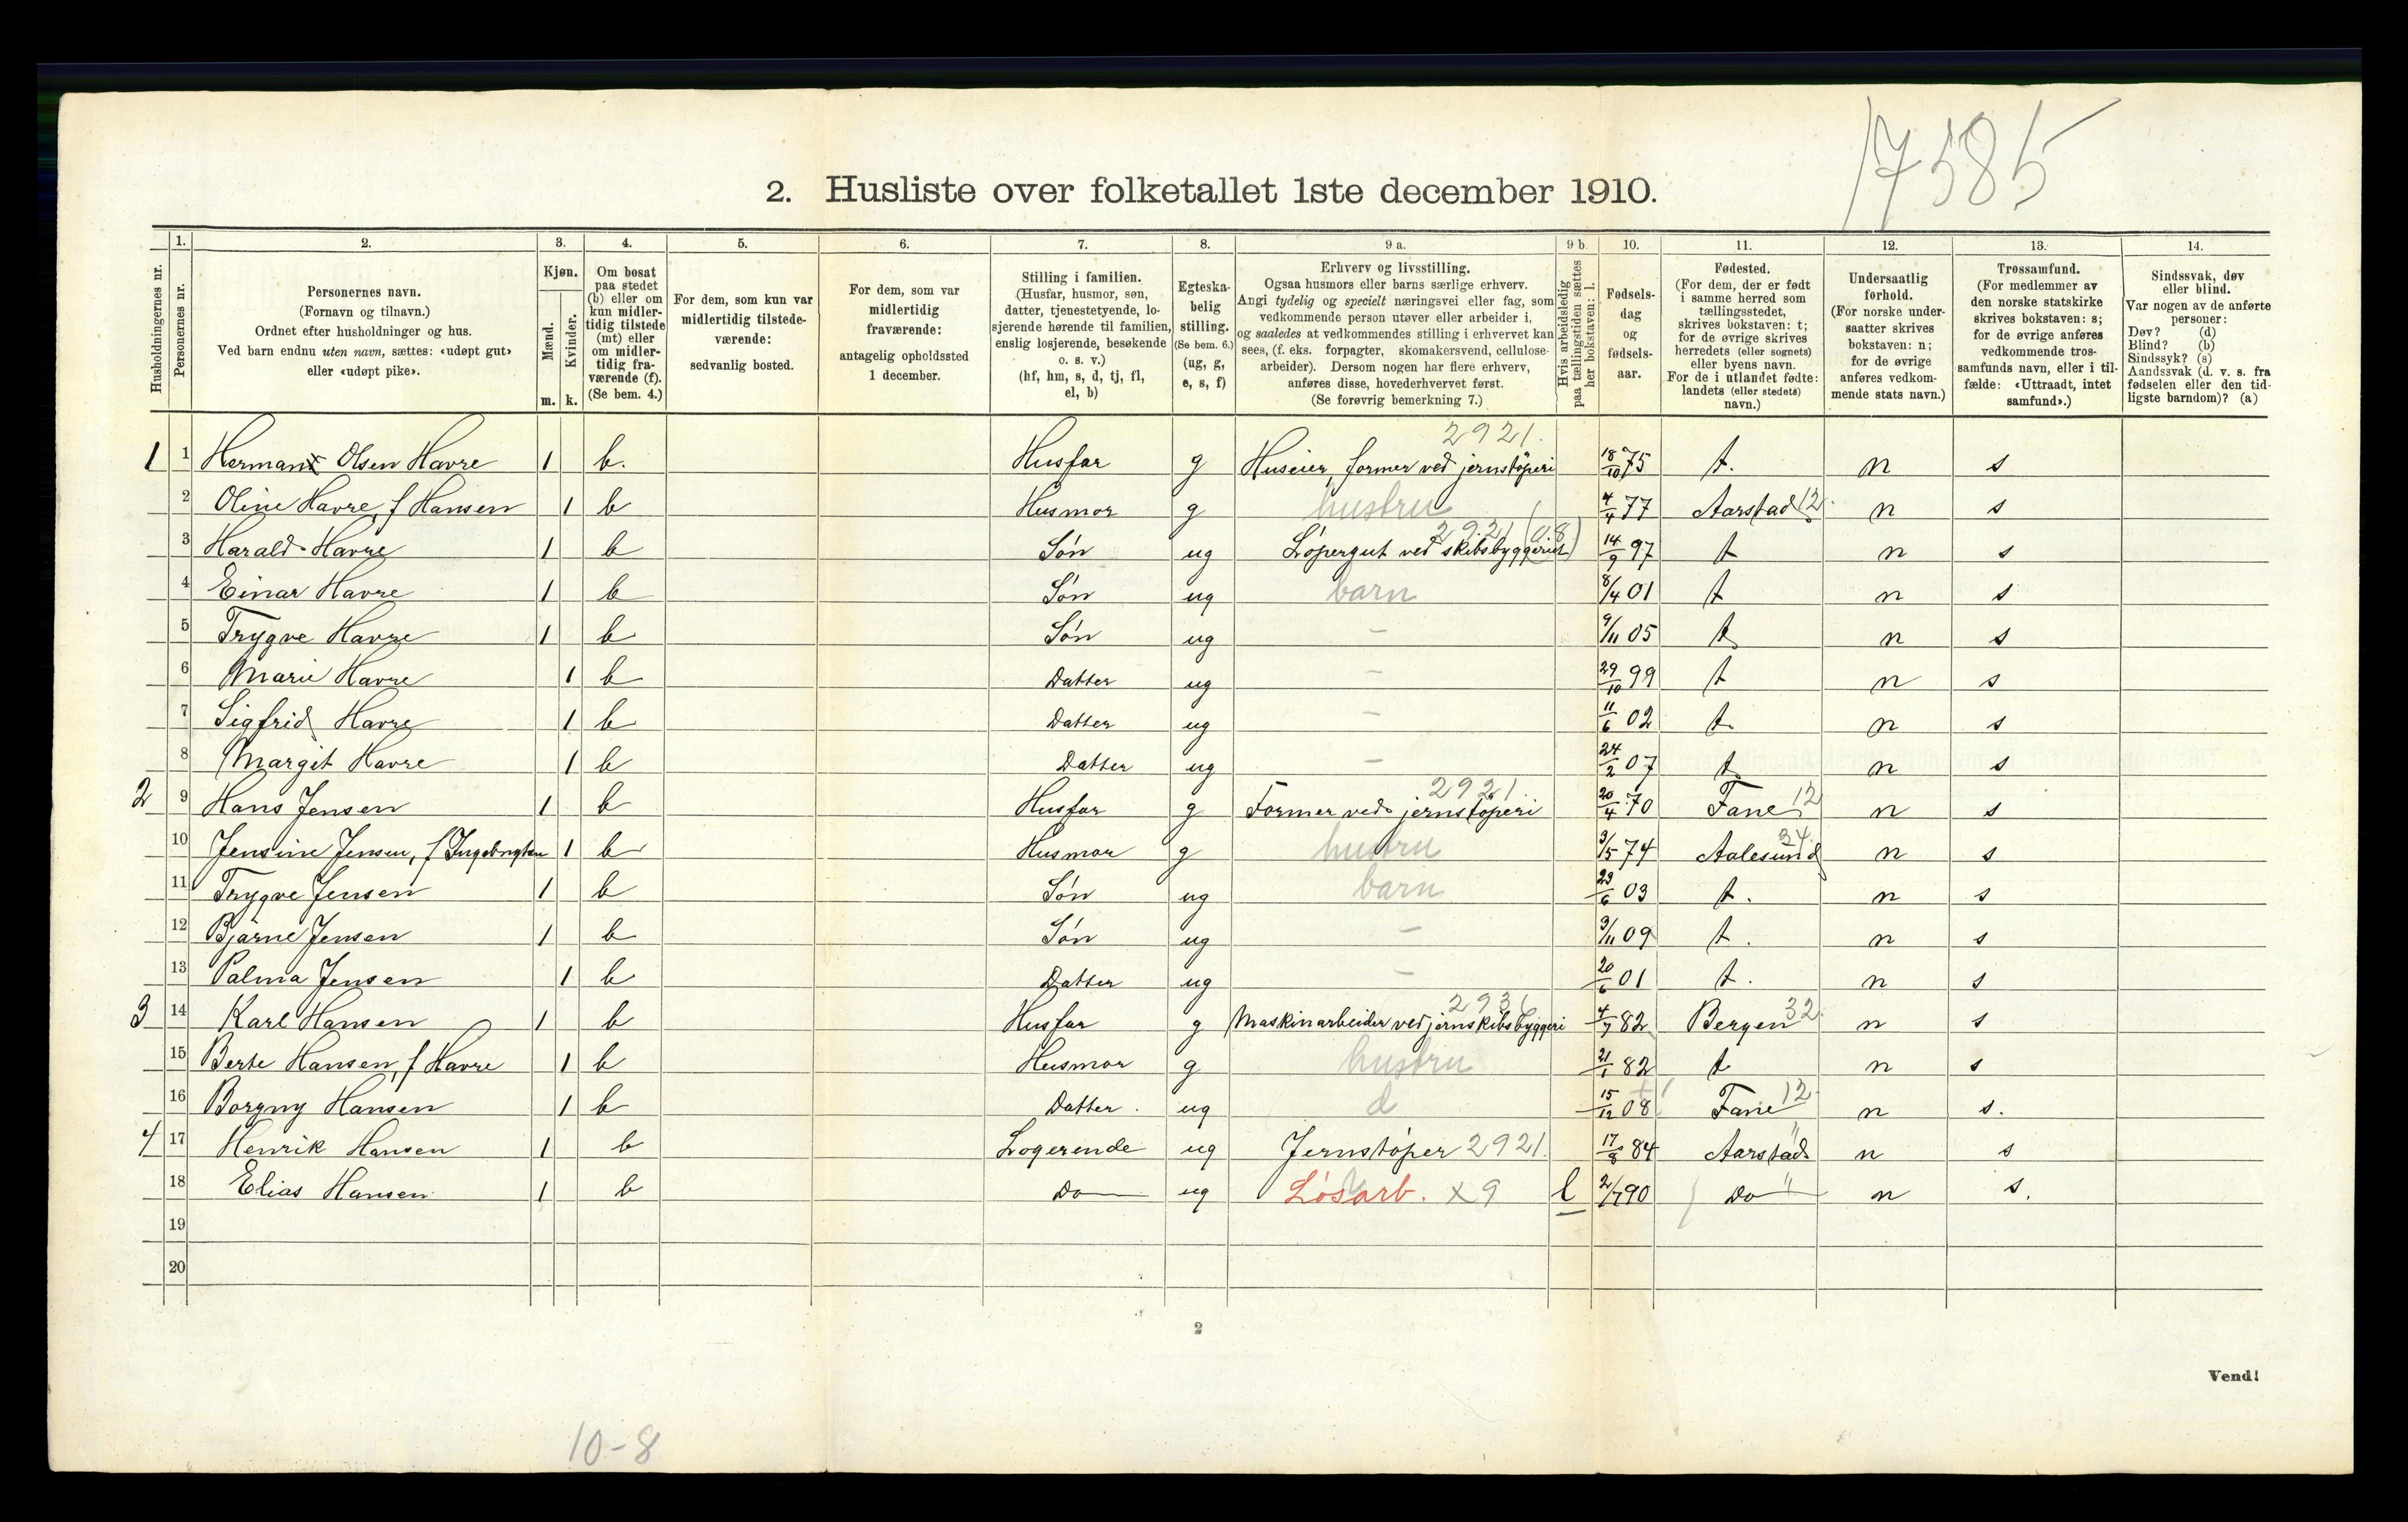 17585
2. Husliste over folketallet 1ste december 1910.
Husholdningernes nr.
1. Personernes nr.
2. Personernes navn. (Fornavn og tilnavn.) Ordnet efter husholdninger og hus. Ved barn endnu uten navn, sættes: «udøpt gut» eller «udøpt pike».
3. Kjøn. Mænd. m. Kvinder. k.
4. Om bosat paa stedet (b) eller om kun midlertidig tilstede (mt) eller om midlertidig fraværende (f). (Se bem. 4.)
5. For dem, som kun var midlertidig tilstedeværende: sedvanlig bosted.
6. For dem, som var midlertidig fraværende: antagelig opholdssted 1 december.
7. Stilling i familien. (Husfar, husmor, søn, datter, tjenestetyende, losjerende hørende til familien, enslig losjerende, besøkende o. s. v.) (hf, hm, s, d, tj, fl, el, b)
8. Egteskabelig stilling. (Se bem. 6.) (ug, g, e, s, f)
9 a. Erhverv og livsstilling. Ogsaa husmors eller barns særlige erhverv. Angi tydelig og specielt næringsvei eller fag, som vedkommende person utøver eller arbeider i, og saaledes at vedkommendes stilling i erhvervet kan sees, (f. eks. forpagter, skomakersvend, cellulosearbeider). Dersom nogen har flere erhverv, anføres disse, hovederhvervet først. (Se forøvrig bemerkning 7.)
9 b. Hvis arbeidsledig paa tællingstiden sættes her bokstaven: l.
10. Fødselsdag og fødselsaar.
11. Fødested. (For dem, der er født i samme herred som tællingsstedet, skrives bokstaven: t; for de øvrige skrives herredets (eller sognets) eller byens navn. For de i utlandet fødte: landets (eller stedets) navn.)
12. Undersaatlig forhold. (For norske undersaatter skrives bokstaven: n; for de øvrige anføres vedkommende stats navn.)
13. Trossamfund. (For medlemmer av den norske statskirke skrives bokstaven: s; for de øvrige anføres vedkommende trossamfunds navn, eller i tilfælde: «Uttraadt, intet samfund».)
14. Sindssvak, døv eller blind. Var nogen av de anførte personer: Døv? (d) Blind? (b) Sindssyk? (s) Aandssvak (d. v. s. fra fødselen eller den tidligste barndom)? (a)
1 1 Herman Olsen Havre 1 b. Husfar g Huseier, former ved jernstöperi 2921. 18/10 75 t. n s
2 Oline Havre, f Hansen 1 b Husmor g hustru 4/4 77 Aarstad 12 n s
3 Harald Havre 1 b Søn ug Løpergut ved skibsbyggeriet 2921 (08) 14/9 97 t n s
4 Einar Havre 1 b Søn ug barn 8/4 01 t n s
5 Trygve Havre 1 b Søn ug – 9/11 05 t n s
6 Marie Havre 1 b Datter ug – 29/10 99 t n s
7 Sigfrid Havre 1 b Datter ug – 11/6 02 t. n s
8 Margit Havre 1 b Datter ug – 24/2 07 t. n s
2 9 Hans Jensen 1 b Husfar g Former ved jernstöperi 2921. 20/4 70 Fane 12 n s
10 Jensine Jensen, f Ingebrigtsen 1 b Husmor g hustru 3/5 74 Aalesund 34 n s
11 Trygve Jensen 1 b Søn ug barn 23/6 03 t. n s
12 Bjarne Jensen 1 b Søn ug – 3/11 09 t. n s
13 Palma Jensen 1 b Datter ug – 20/6 01 t. n s
3 14 Karl Hansen 1 b Husfar g Maskinarbeider ved jernskibsbyggeri 2931 4/7 82 Bergen 32 n s
15 Berte Hansen, f Havre 1 b Husmor g hustru 21/1 82 t n s
16 Borgny Hansen 1 b Datter. ug d 15/12 08 Fane 12 n s.
4 17 Henrik Hansen 1 b Logerende ug Jernstøper 2921. 17/8 84 Aarstad " n s
18 Elias Hansen 1 b Do ug Løsarb. x9 l 2/7 90 Do " n s.
19
20
2
Vend!
10-8